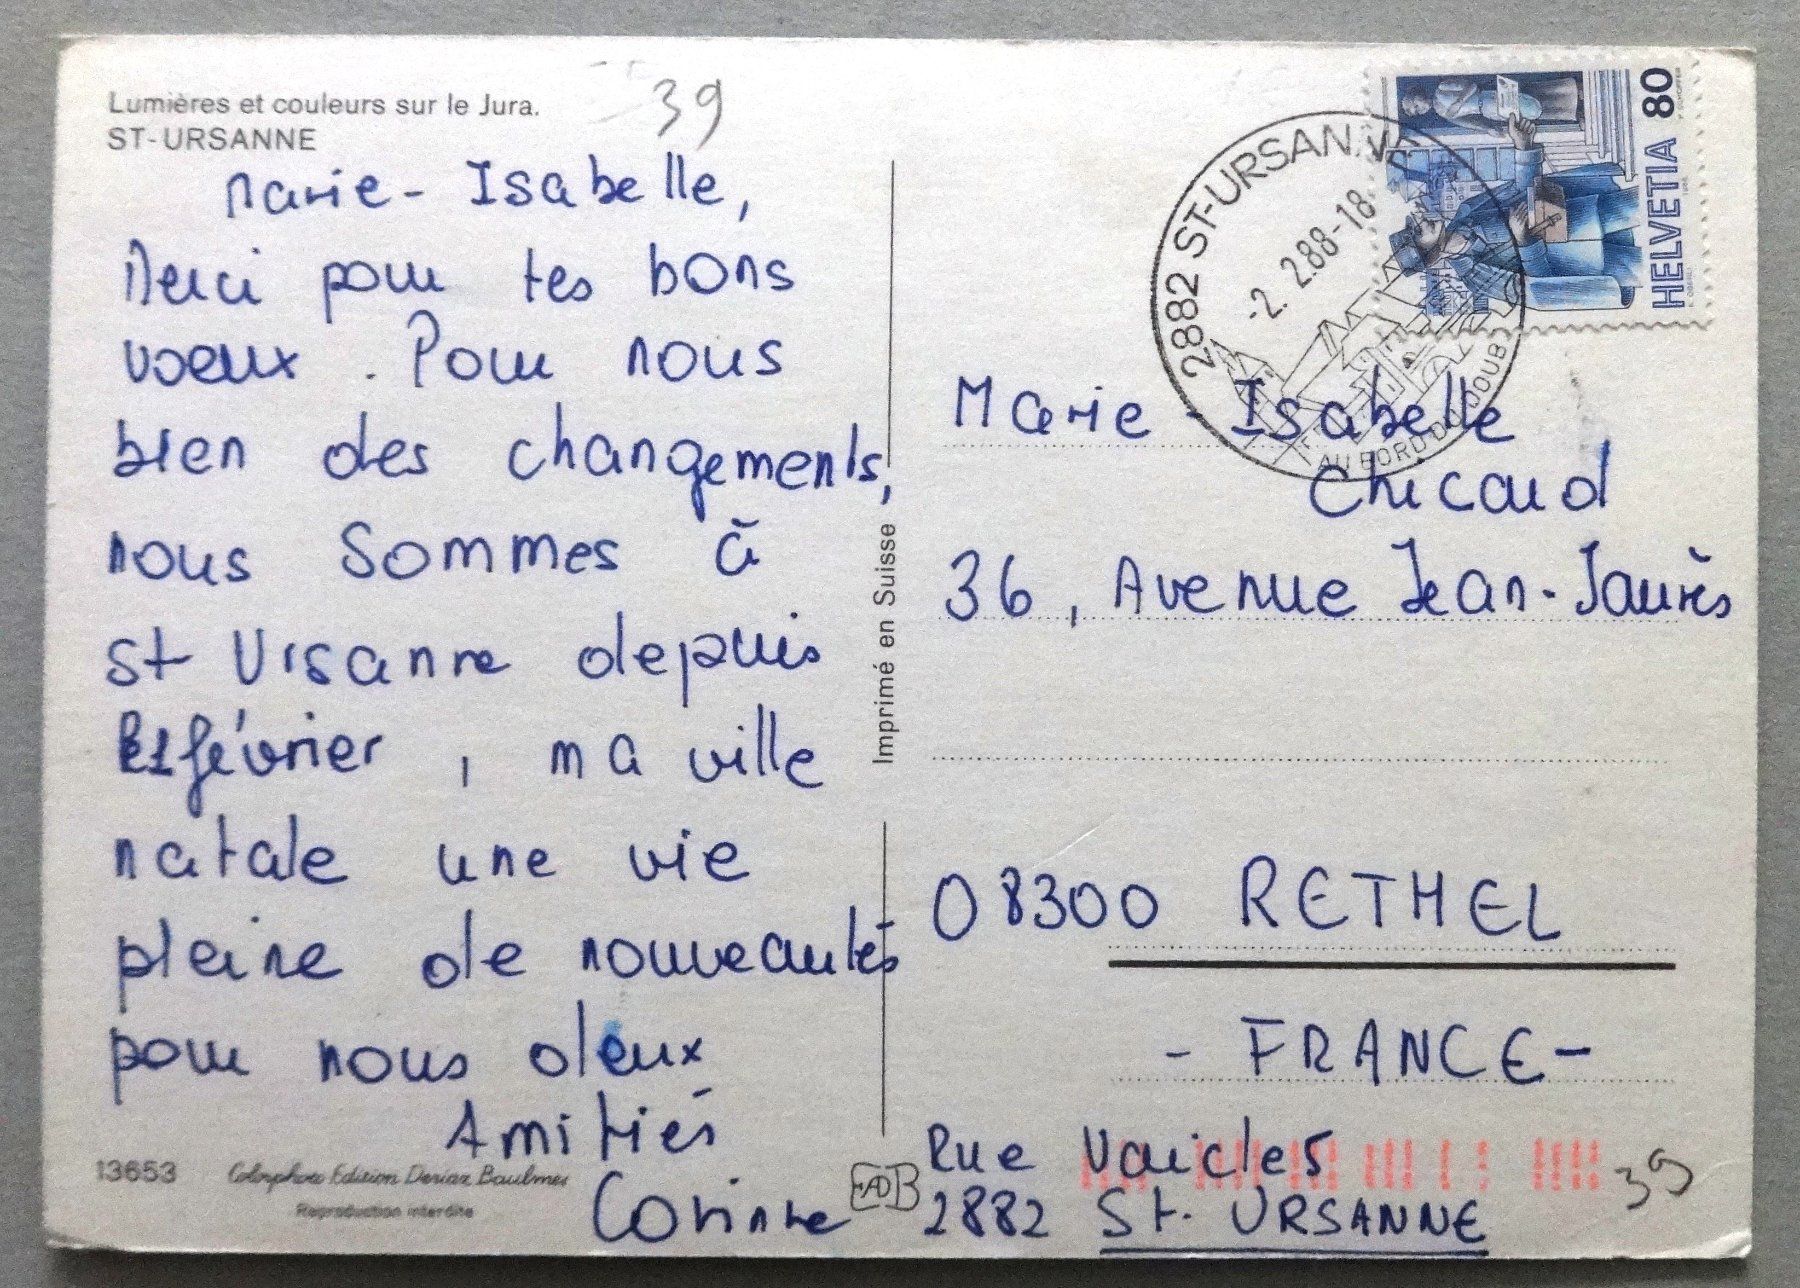 Lumières et couleurs sur le Jura.
ST-URSANNE
39
Marie-Isabelle,
Merci pour tes bons
voeux. Pour nous
bien des changements,
nous sommes à
St Ursanne depuis
février, ma ville
natale une vie
pleine de nouveautés
pour nous deux
Amitiés
Corinne
13653
Colorphoto Edition Deriaz Baulmes
Reproduction interdite
Imprimé en Suisse
HELVETIA 80
2882 ST-URSANNE
-2. 2.88-18
AU BORD DU DOUBS
Marie-Isabelle
Chicaud
36, Avenue Jean-Jaurès
08300 RETHEL
- FRANCE -
Rue
2882 St. URSANNE
39